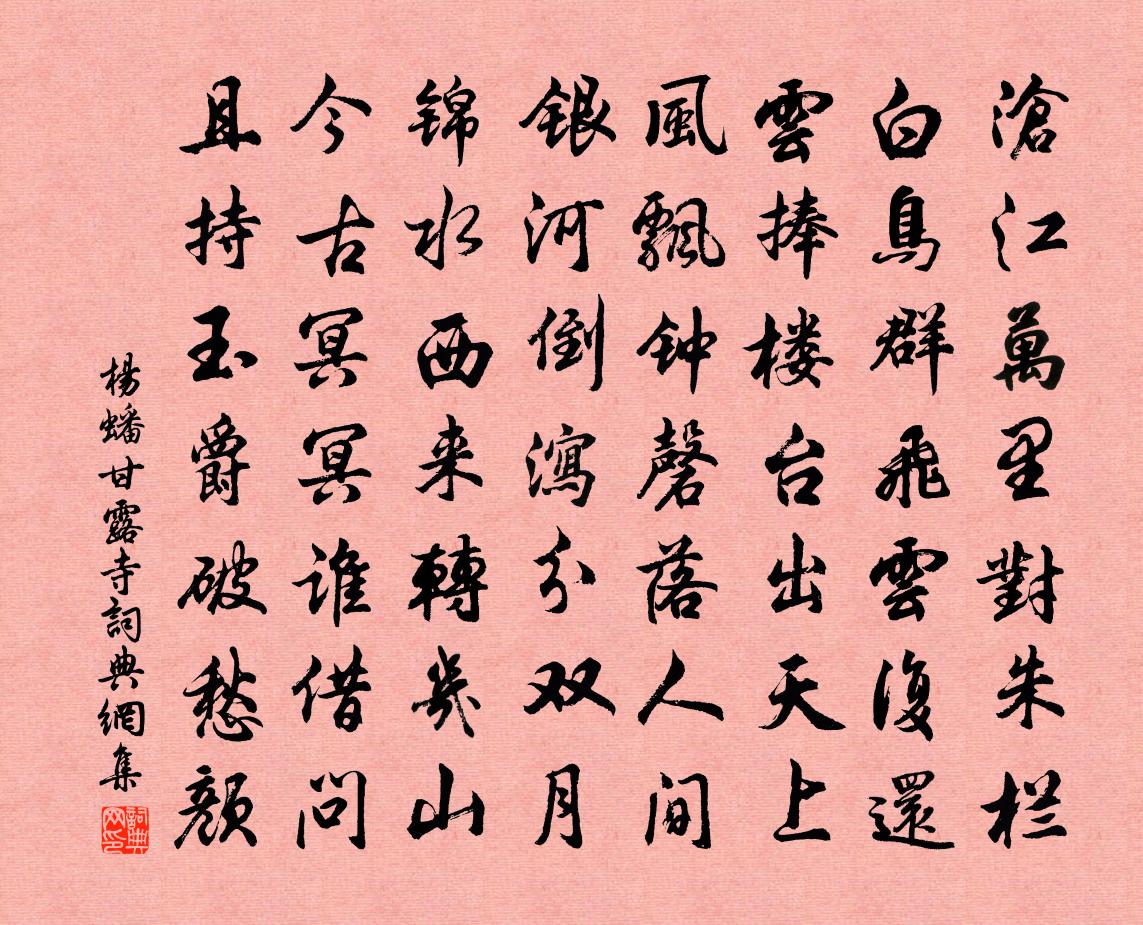 滄江萬里對朱栏
白鳥群飛雲復還
雲捧楼台出天上
風飄钟磬落人间
银河倒瀉分双月
锦水西来轉幾山
今古冥冥谁借问
且持玉爵破愁颜
楊蟠甘露寺詞典網集
詞典网印